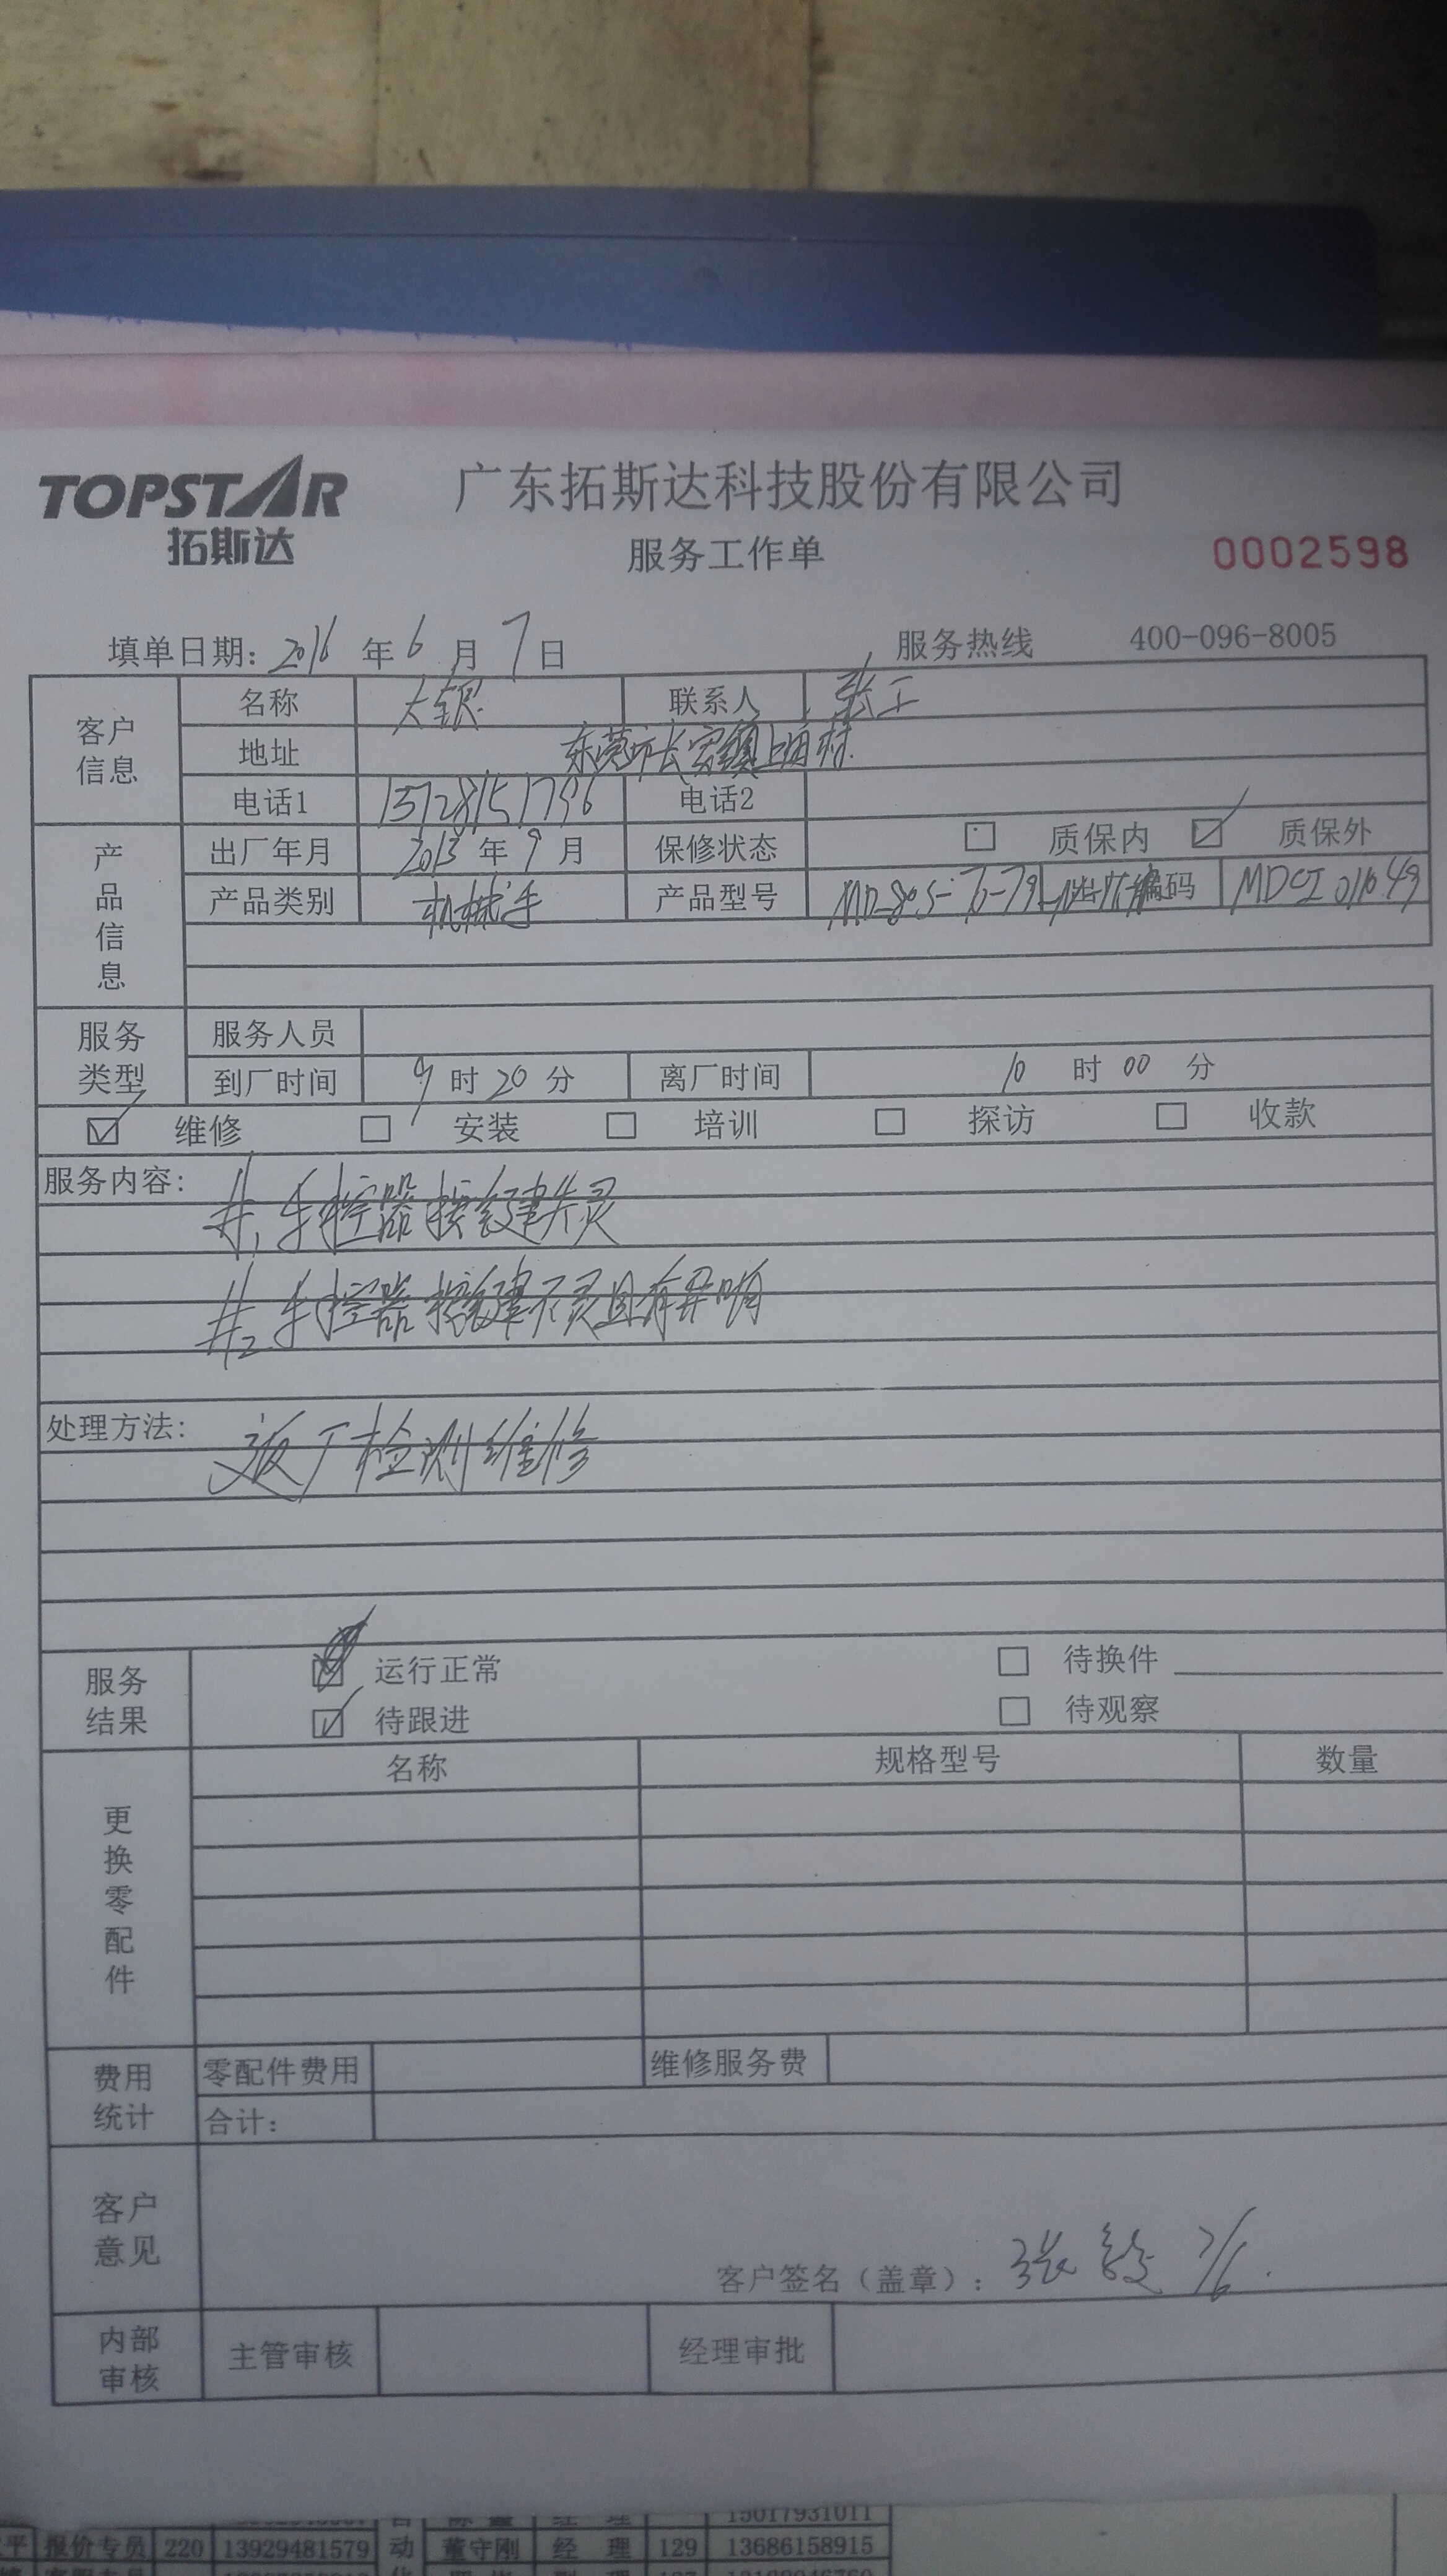 TOPSTAR
拓斯达
广东拓斯达科技股份有限公司
服务工作单
0002598
填单日期: 2016 年 6 月 7 日
服务热线 400-096-8005
客户信息
名称 大银 联系人 张工
地址
电话1 13728151796 电话2
产品信息
出厂年月 2013 年 9 月 保修状态 质保内 质保外
产品类别 机械手 产品型号 编码
服务类型
服务人员
到厂时间 9 时 20 分 离厂时间 10 时 00 分
维修 安装 培训 探访 收款
服务内容:
#1 手控器按键失灵
#2 手控器按键不灵且有异响
处理方法: 返厂检测维修
服务结果
运行正常 待换件
待跟进 待观察
更换零配件
名称 规格型号 数量
费用统计
零配件费用 维修服务费
合计:
客户意见
客户签名（盖章）: 张 7/6.
内部审核
主管审核 经理审批
15017931011
平 报价专员 220 13929481579 动 董守刚 经 理 129 13686158915